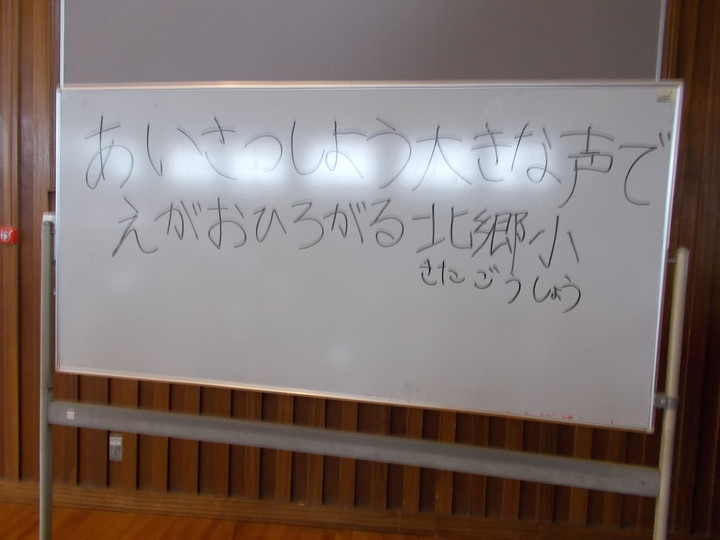 あいさつしよう大きな声で
えがおひろがる北郷小
きたごうしょう